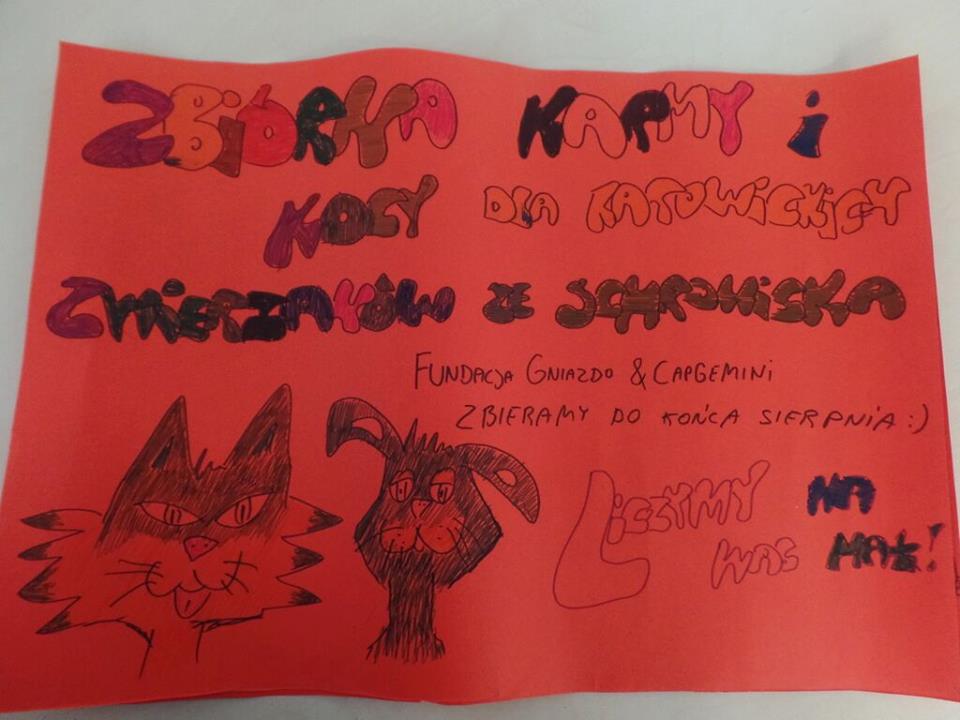 ZBiÓRKA KARMY i
KOCY DLA KATOWiCKiCY
ZWiERZAKÓW ZE SCHRONiSKA
FUNDACJA GNIAZDO & CAPGEMINI
ZBIERAMY DO KOŃCA SIERPNIA :)
LiCZYMY NA
WAS